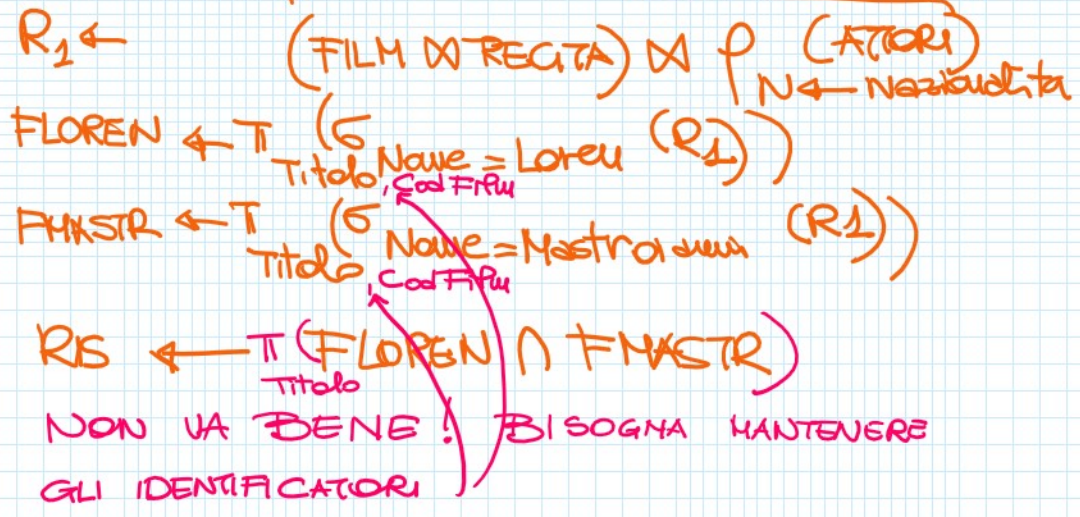 R1 ← (FILM ⋈ RECITA) ⋈ ρ N ← Nazionalita (ATTORI)
FLOREN ← π Titolo, CodFilm (σ Nome = Loren (R1))
FMASTR ← π Titolo, CodFilm (σ Nome = Mastroianni (R1))
RIS ← π Titolo (FLOREN ∩ FMASTR)
NON VA BENE! BISOGNA MANTENERE
GLI IDENTIFICATORI